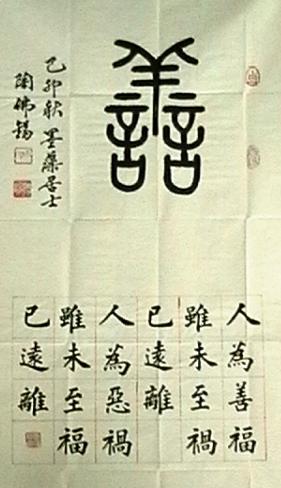 譱
人為善福
雖未至禍
已遠離
人為惡禍
雖未至福
已遠離
己卯秋墨藥居士
陶佛錫